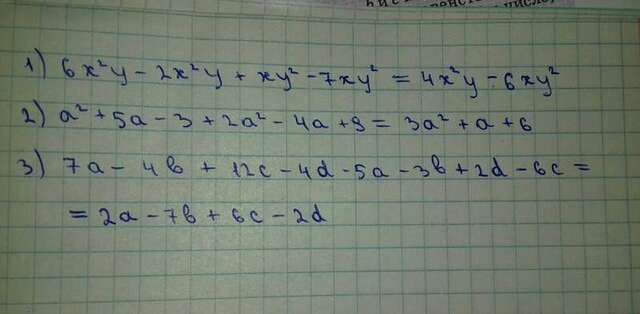 1) 6x²y - 2x²y + xy² - 7xy² = 4x²y - 6xy²
2) a² + 5a - 3 + 2a² - 4a + 9 = 3a² + a + 6
3) 7a - 4b + 12c - 4d - 5a - 3b + 2d - 6c =
= 2a - 7b + 6c - 2d